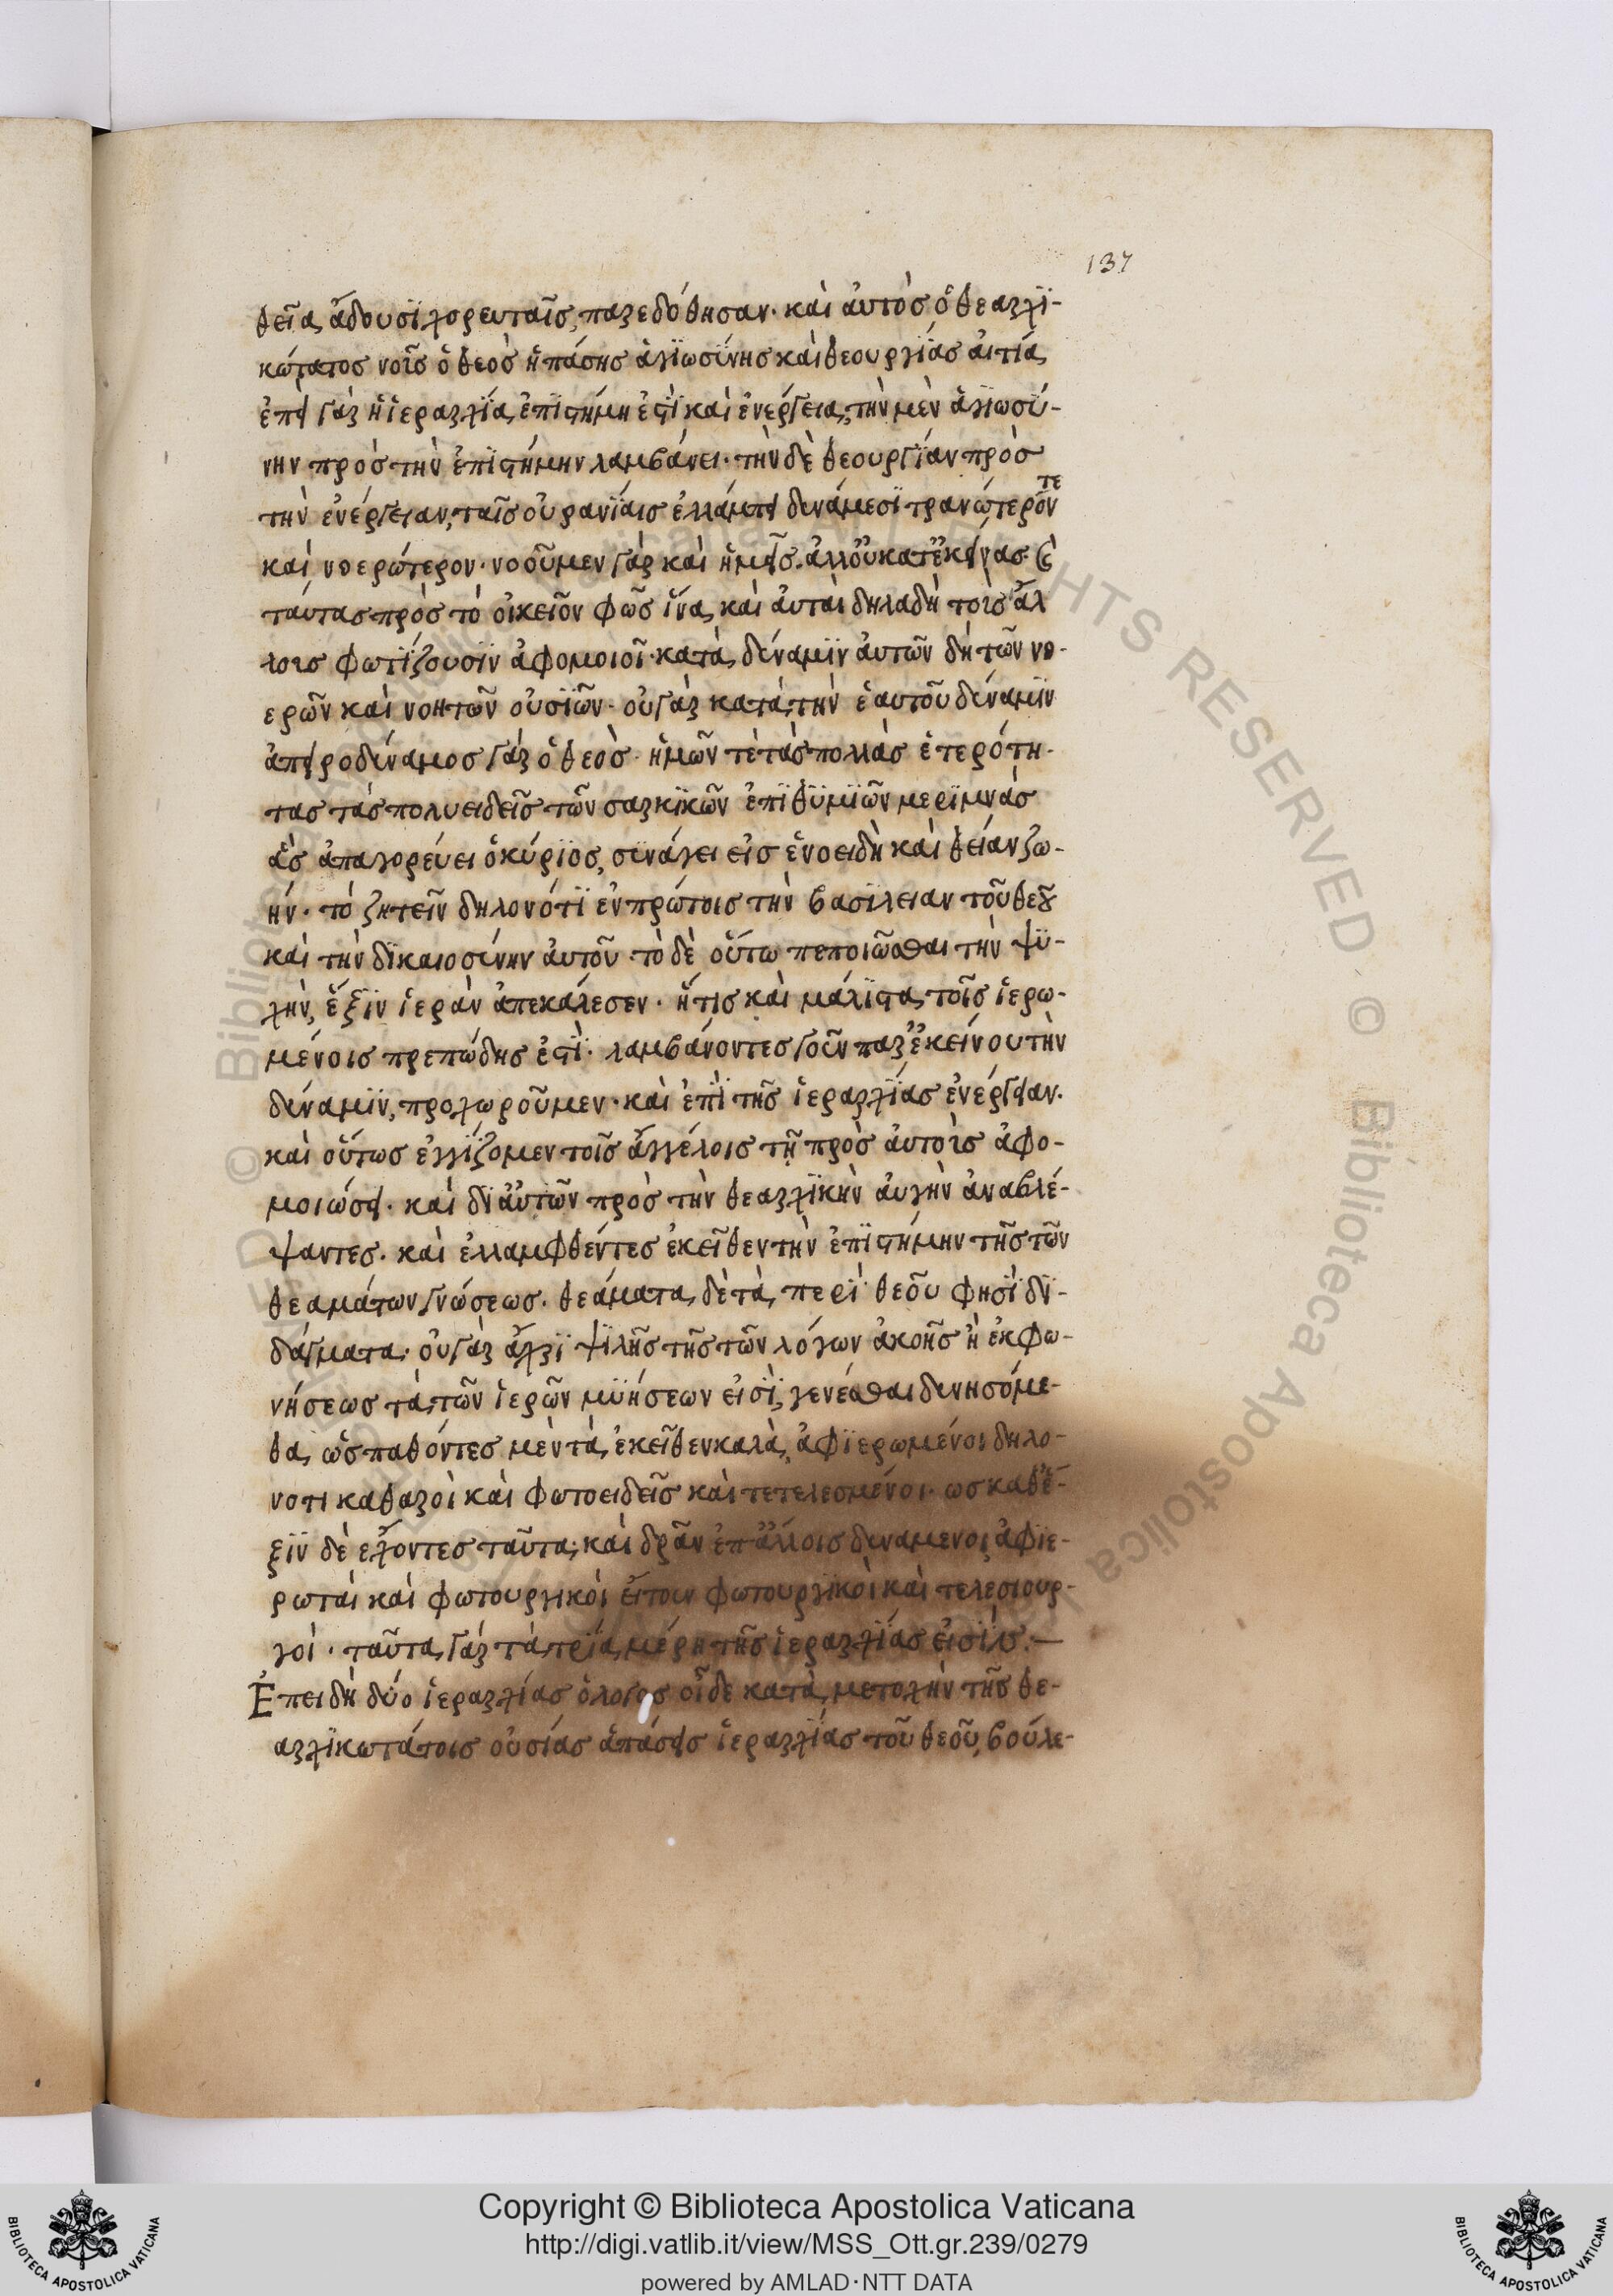 137
θεῖα ἄδουσϊ χορευταῖς, παρεδόθησαν· καὶ ἀυτὸς ὁ θεαρχϊ-
κώτατος νοῦς ὁ θεὸς ἡ πάσης ἁγϊωσύνης καὶ θεουργϊάς ἀιτία
ἐπεὶ γὰρ ἡ ἱεραρχϊα ἐπϊστήμη ἐστὶ καὶ ἐνέργεια, τὴν μὲν ἁγϊωσύ-
νην πρὸς τὴν ἐπϊστήμην λαμβάνει· τὴν δὲ θεουργϊαν πρὸς
τὴν ἐνέργειαν, ταῖς οὐρανϊαις ἐλλάμπει δυνάμεσϊ τρανώτερόν τε
καὶ νοερώτερον· νοοῦμεν γὰρ καὶ ἡμεῖς. ἀλλ' οὐ κατ' ἐκείνας· καὶ
ταύτας πρὸς τὸ οἰκεῖον φῶς ἵνα καὶ ἀυταὶ δηλαδὴ τοὺς ἄλ
λους φωτίζουσϊν ἀφομοιοῖ· κατὰ δύναμϊν ἀυτῶν δὴ τῶν νο-
ερῶν καὶ νοητῶν οὐσϊῶν· οὐ γὰρ κατὰ τὴν ἑαυτοῦ δύναμϊν
ἀπειροδύναμος γὰρ ὁ θεὸς· ἡμῶν τὲ τὰς πολλὰς ἑτερότη-
τας τὰς πολυειδεῖς τῶν σαρκϊκῶν ἐπϊθϋμϊῶν μερϊμνὰς
ἃς ἀπαγορεύει ὁ κύρϊος, συνάγει εἰς ἑνοειδῆ καὶ θείαν ζω-
ήν· τὸ ζητεῖν δηλονότϊ ἐν πρώτοις τὴν βασϊλειαν τοῦ θεοῦ
καὶ τὴν δϊκαιοσύνην ἀυτοῦ τὸ δὲ οὕτω πεποιῶσθαι τὴν ψϋ-
χὴν, ἕξϊν ἱερὰν ἀπεκάλεσεν· ἥτις καὶ μάλϊστα τοῖς ἱερω-
μένοις πρεπώδης ἐστὶ· λαμβάνοντες γοῦν παρ' ἐκείνου τὴν
δύναμϊν, προχωροῦμεν· καὶ ἐπὶ τῆς ἱεραρχϊάς ἐνέργειαν.
καὶ οὕτως ἐγγϊζομεν τοῖς ἀγγέλοις τῇ πρὸς ἀυτοὺς ἀφο-
μοιώσει. καὶ δι' ἀυτῶν πρὸς τὴν θεαρχϊκὴν ἀυγὴν ἀναβλέ-
ψαντες. καὶ ἐλλαμφθέντες ἐκεῖθεν τὴν ἐπϊστήμην τῆς τῶν
θεαμάτων γνώσεως. θεάματα δὲ τὰ περὶ θεοῦ φησὶ δϊ-
δάγματα· οὐ γὰρ ἄχρϊ ψϊλῆς τῆς τῶν λόγων ἀκοῆς ἢ ἐκφω-
νήσεως τὰ τῶν ἱερῶν μϋήσεων εἰσὶ, γενέσθαι δυνησόμε-
θα, ὡς παθόντες μὲν τὰ ἐκεῖθεν καλὰ, ἀφϊερωμένοι δηλο-
νοτι καθαροὶ καὶ φωτοειδεῖς καὶ τετελεσμένοι. ὡς καθ' ἕ-
ξϊν δὲ ἔχοντες ταῦτα, καὶ δρᾶν ἐπ' ἄλλοις δυναμενοι, ἀφϊε-
ρωταὶ καὶ φωτουργικοὶ εἴτουν φωτουργϊκοὶ καὶ τελεσιουρ-
γοὶ· ταῦτα γὰρ τὰ τρϊα μέρη τῆς ἱεραρχϊας εἰσὶν.—
Ἐπειδὴ δύο ἱεραρχϊας ὁ λόγος οἶδε κατὰ μετοχὴν τῆς θε-
αρχϊκωτάτοις οὐσίας ἁπάσης ἱεραρχϊας τοῦ θεοῦ, βούλε-
Copyright © Biblioteca Apostolica Vaticana
http://digi.vatlib.it/view/MSS_Ott.gr.239/0279
powered by AMLAD·NTT DATA